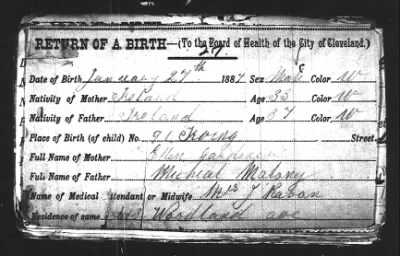 RETURN OF A BIRTH—(To the Board of Health of the City of Cleveland.)
27.
Date of Birth January 27th 1887 Sex Male Color W
Nativity of Mother Ireland Age 35 Color W
Nativity of Father Ireland Age 37 Color W
Place of Birth (of child) No. 91 Street
Full Name of Mother Ellen
Full Name of Father Micheal Malony
Name of Medical Attendant or Midwife Mrs J Raban
Residence of same Woodland ave